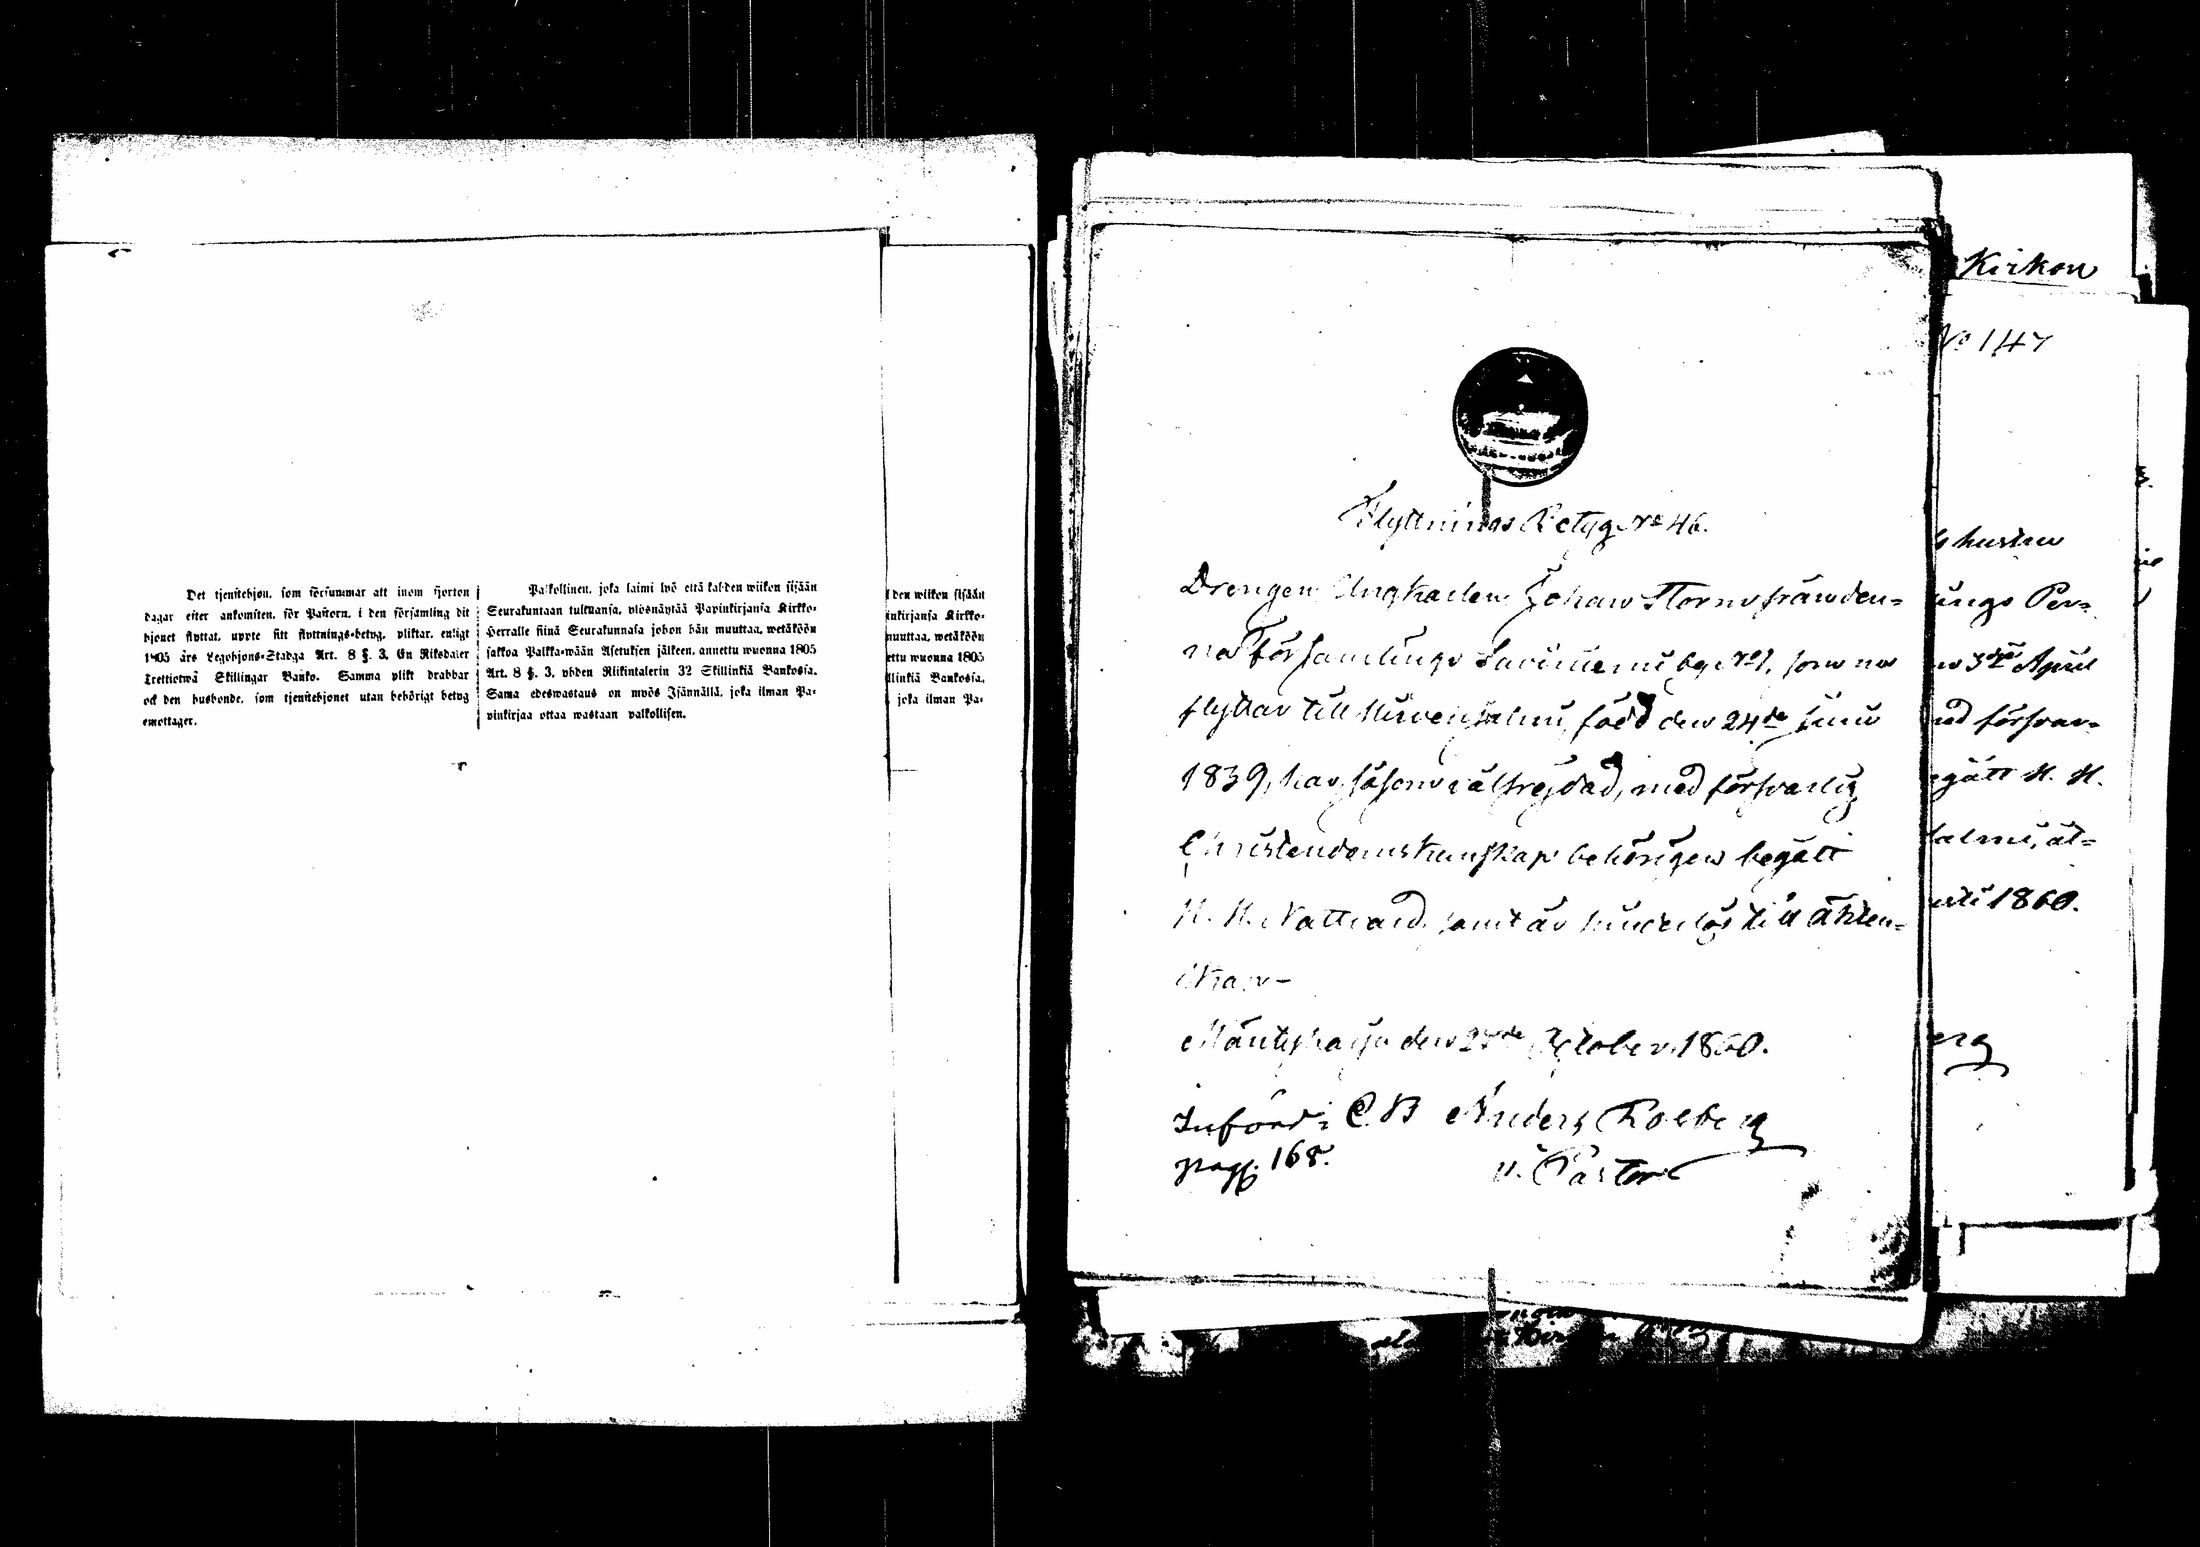 Det tjenstehjon, som försummar att inom fjorton
dagar efter ankomsten, för Pastorn, i den församling dit
hjonet flyttat, uppte sitt flyttnings-betyg, pliktar, enligt
1805 års Legohjons-Stadga Art. 8 §. 3, En Riksdaler
Trettiotwå Skillingar Banko. Samma plikt drabbar
ock den husbonde, som tjenstehjonet utan behörigt betyg
emottager.
Palkollinen, joka laimi lyö että kahden wiikon sisään
Seurakuntaan tultuansa, ylösnäyttää Papinkirjansa Kirkko-
Herralle siinä Seurakunnasa johon hän muuttaa, wetäköön
sakkoa Palkka-wään Asetuksen jälkeen, annettu wuonna 1805
Art. 8 §. 3, yhden Riikintalerin 32 Skillinkiä Bankosia.
Sama edeswastaus on myös Isännällä, joka ilman Pa-
pinkirjaa ottaa wastaan palkollisen.
den wiikon sisään
nkirjansa Kirkko-
muuttaa, wetäköön
ettu wuonna 1805
llinkiä Bankosia.
joka ilman Pa-
Flyttnings Betyg No 46.
Drengen Ungkarlen Johan Storm från den-
na församlings Saviniemi by No 1, som nu
flyttar till Hirvensalmi, född den 24de Juni
1839, har, såsom välfrejdad, med försvarlig
Christendomskunskap behörigen begått
H. H. Nattvard, samt är hinderlös till Äkten-
skap-
Mäntyharju den 27de October 1860.
Införd i C. B
pag. 168.
Anders Kolberg
v. Pastor
Kirkon
No 147
hustru
lings Per-
3dje April
med försvar-
egått H. H.
salmi, ät-
usti 1860.
erg